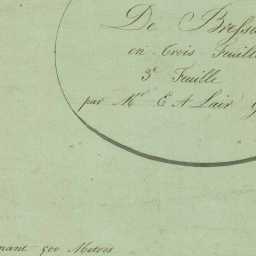 De Bress
en Trois Feuill
3e Feuille
par Mr E A Lair
nant 500 Metres